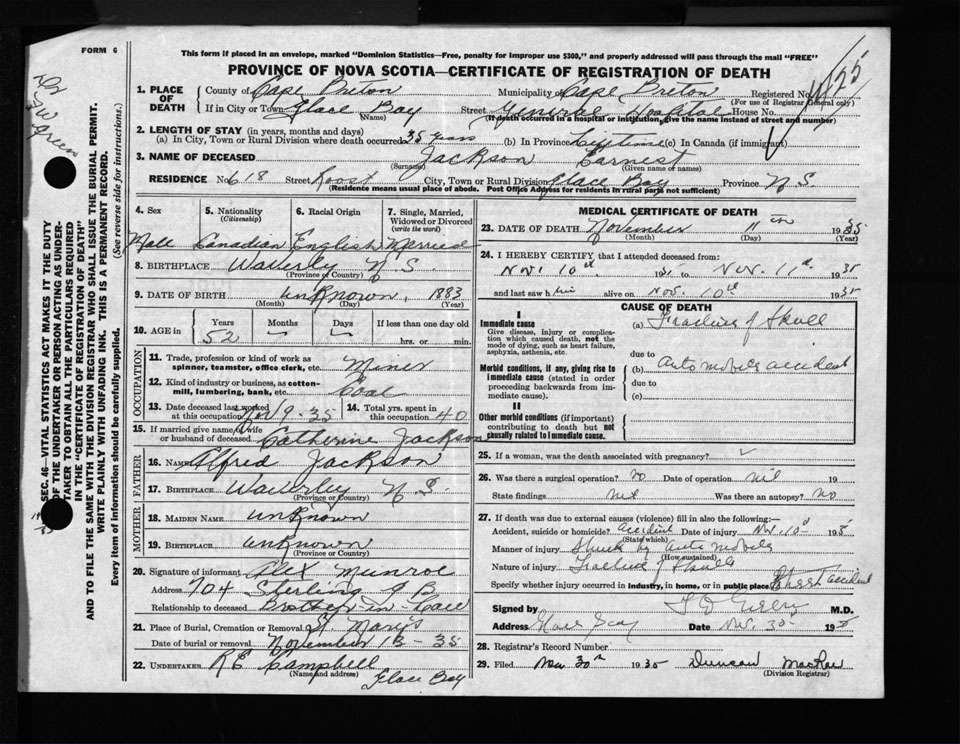 FORM 6
This form if placed in an envelope, marked "Dominion Statistics—Free, penalty for improper use $300," and properly addressed will pass through the mail "FREE"
PROVINCE OF NOVA SCOTIA—CERTIFICATE OF REGISTRATION OF DEATH
1. PLACE OF DEATH County of Cape Breton Municipality of Cape Breton Registered No.
(For use of Registrar General only)
If in City or Town Glace Bay Street General Hospital House No.
(Name) (If death occurred in a hospital or institution, give the name instead of street and number)
2. LENGTH OF STAY (in years, months and days)
(a) In City, Town or Rural Division where death occurred 35 years (b) In Province Lifetime (c) In Canada (if immigrant)
3. NAME OF DECEASED Jackson Earnest
(Surname) (Given name or names)
RESIDENCE No 618 Street Roost City, Town or Rural Division Glace Bay Province N.S.
(Residence means usual place of abode. Post Office Address for residents in rural parts not sufficient)
SEC. 46—VITAL STATISTICS ACT MAKES IT THE DUTY
OF THE UNDERTAKER OR PERSON ACTING AS UNDER-
TAKER TO OBTAIN ALL THE PARTICULARS REQUIRED
IN THE "CERTIFICATE OF REGISTRATION OF DEATH"
AND TO FILE THE SAME WITH THE DIVISION REGISTRAR WHO SHALL ISSUE THE BURIAL PERMIT.
WRITE PLAINLY WITH UNFADING INK. THIS IS A PERMANENT RECORD.
Every item of information should be carefully supplied. (See reverse side for instructions.)
4. Sex 5. Nationality (Citizenship) 6. Racial Origin 7. Single, Married, Widowed or Divorced (write the word)
Male Canadian English Married
8. BIRTHPLACE Waverly N.S.
(Province or Country)
9. DATE OF BIRTH unknown, 1883
(Month) (Day) (Year)
10. AGE in Years Months Days If less than one day old
52 hrs. or min.
OCCUPATION
11. Trade, profession or kind of work as spinner, teamster, office clerk, etc. Miner
12. Kind of industry or business, as cotton-mill, lumbering, bank, etc. Coal
13. Date deceased last worked at this occupation Nov 9-35 14. Total yrs. spent in this occupation 40
15. If married give name of wife or husband of deceased Catherine Jackson
FATHER
16. NAME Alfred Jackson
17. BIRTHPLACE Waverley N.S.
(Province or Country)
MOTHER
18. MAIDEN NAME unknown
19. BIRTHPLACE unknown
(Province or Country)
20. Signature of informant Alex Munroe
Address 704 Sterling G B
Relationship to deceased Brother-in-law
21. Place of Burial, Cremation or Removal St. Mary's
Date of burial or removal November 13-35
22. UNDERTAKER Campbell
(Name and address) Glace Bay
MEDICAL CERTIFICATE OF DEATH
23. DATE OF DEATH November 11th 1935
(Month) (Day) (Year)
24. I HEREBY CERTIFY that I attended deceased from:
Nov. 10th 19 to Nov. 11th 1935
and last saw him alive on Nov. 10th 1935
CAUSE OF DEATH
I
Immediate cause (a) Fracture of Skull
Give disease, injury or complication which caused death, not the mode of dying, such as heart failure, asphyxia, asthenia, etc.
due to
Morbid conditions, if any, giving rise to immediate cause (stated in order proceeding backwards from immediate cause). (b) Automobile accident
due to
(c)
II
Other morbid conditions (if important) contributing to death but not causally related to immediate cause.
25. If a woman, was the death associated with pregnancy?
26. Was there a surgical operation? no Date of operation nil 19
State findings nil Was there an autopsy? No
27. If death was due to external causes (violence) fill in also the following:—
Accident, suicide or homicide? accident Date of injury Nov. 10th 1935
(State which)
Manner of injury Struck by automobile
(How sustained)
Nature of injury Fracture of Skull
Specify whether injury occurred in industry, in home, or in public place Street accident
Signed by M.D.
Address Glace Bay Date Nov. 30 19
28. Registrar's Record Number
29. Filed Nov 30th 1935 Duncan MacRae
(Division Registrar)